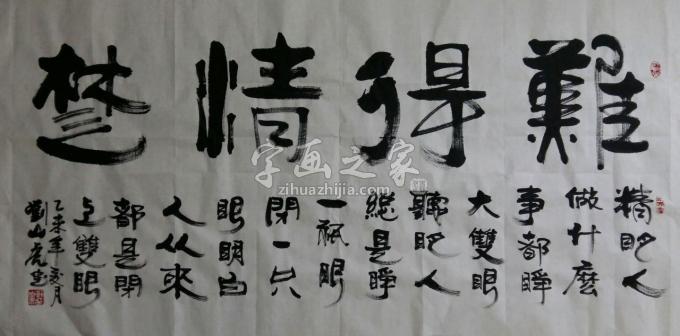 難得情楚
精眀人
做什麼
事都睜
大雙眼
聰眀人
總是睜
一祇眼
閉一只
眼明白
人从來
都是閉
上雙眼
乙未年月
劉山虎書
字画之家
zihuazhijia.com